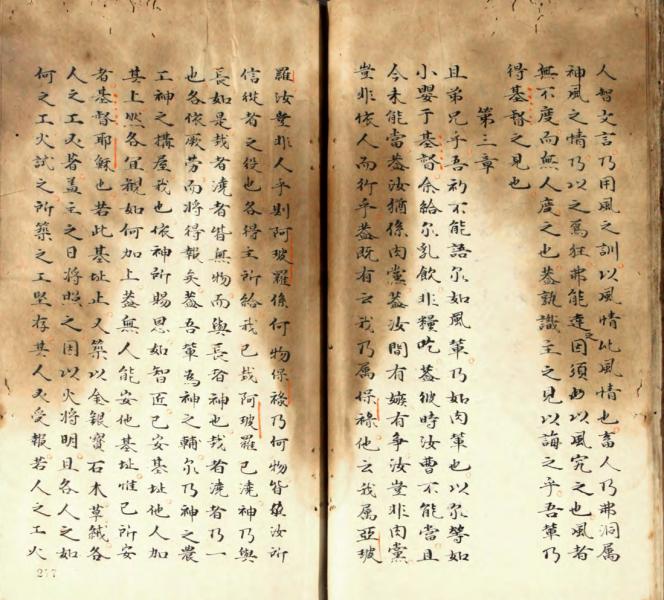 人智文言乃用風之訓以風情比風情也畜人乃弗洞属
神風之情乃以之為狂弗能達之因須以風究之也風者
無不度而無人度之也蓋孰識主之見以誨之乎吾輩乃
得基督之見也
第三章
且弟兄乎吾祈不能語尔如風輩乃如肉輩也以尔等如
小嬰于基督余給尔乳飲非糧吃蓋彼時汝曹不能當且
今未能當蓋汝猶係肉黨蓋汝間有嫉有爭汝豈非肉黨
豈非依人而行乎蓋既有云我乃属保祿他云我属亞玻
羅汝豈非人乎則阿玻羅係何物保祿乃何物皆汝所
信從者之役也各得主所給我已栽阿玻羅已澆神乃與
長如是栽者澆者皆無物而與長者神也栽者澆者乃一
也各依厥勞而將得報矣蓋吾輩為神之輔尔乃神之農
工神之搆屋我也依神所賜恩如智匠已安基址他人加
其上然各宜覩如何加上蓋無人能安他基址惟已所安
者基督耶穌也若此基址止又築以金銀寶石木草各
人之工必蓋主之日將照之因以火將明且各人之如
何之工火試之所築之工堅存其人必受報若人之工火
277